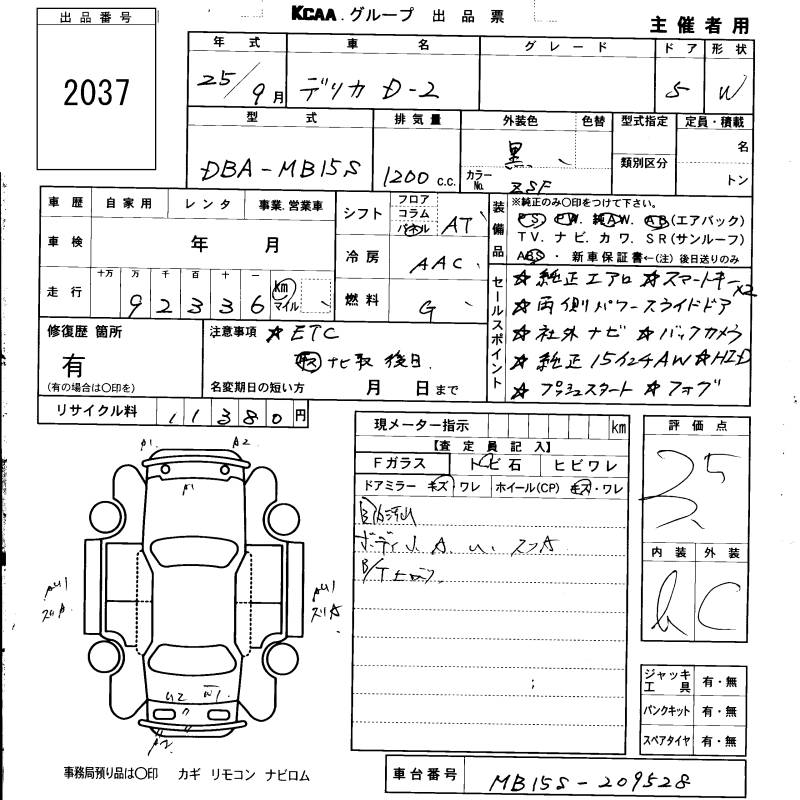 KCAA.グループ 出品票
主催者用
出品番号
2037
年式 車名 グレード ドア 形状
25/9月 デリカ D-2 5 W
型式 排気量 外装色 色替 型式指定 定員・積載
DBA-MB15S 1200 c.c. 黒 カラーNo. ZSF 類別区分 名
トン
車歴 自家用 レンタ 事業.営業車
車検 年 月
走行 十万 万 千 百 十 一 km マイル
92336
シフト フロア コラム パネル AT
冷房 AAC
燃料 G
装備品
※純正のみ〇印をつけて下さい。
PS PW. 純AW. AB(エアバック)
TV. ナビ. カワ. SR(サンルーフ)
ABS・ 新車保証書←(注)後日送りのみ
セールスポイント
☆純正エアロ ☆スマートキーx2
☆両側パワースライドドア
☆社外ナビ ☆バックカメラ
☆純正15インチAW ☆HID
☆プッシュスタート ☆フォグ
修復歴 箇所
有
(有の場合は〇印を)
注意事項 ☆ETC
ナビ取 後日.
名変期日の短い方 月 日まで
リサイクル料 11380円
現メーター指示 km
【査定員記入】
Fガラス トビ石 ヒビワレ
ドアミラー キズ・ワレ ホイール(CP) キズ・ワレ
ボディ J. A. u.
評価点
内装 外装
C
A1 A2
A1
U2 W1
ジャッキ工具 有・無
パンクキット 有・無
スペアタイヤ 有・無
事務局預り品は〇印 カギ リモコン ナビロム
車台番号 MB15S-209528